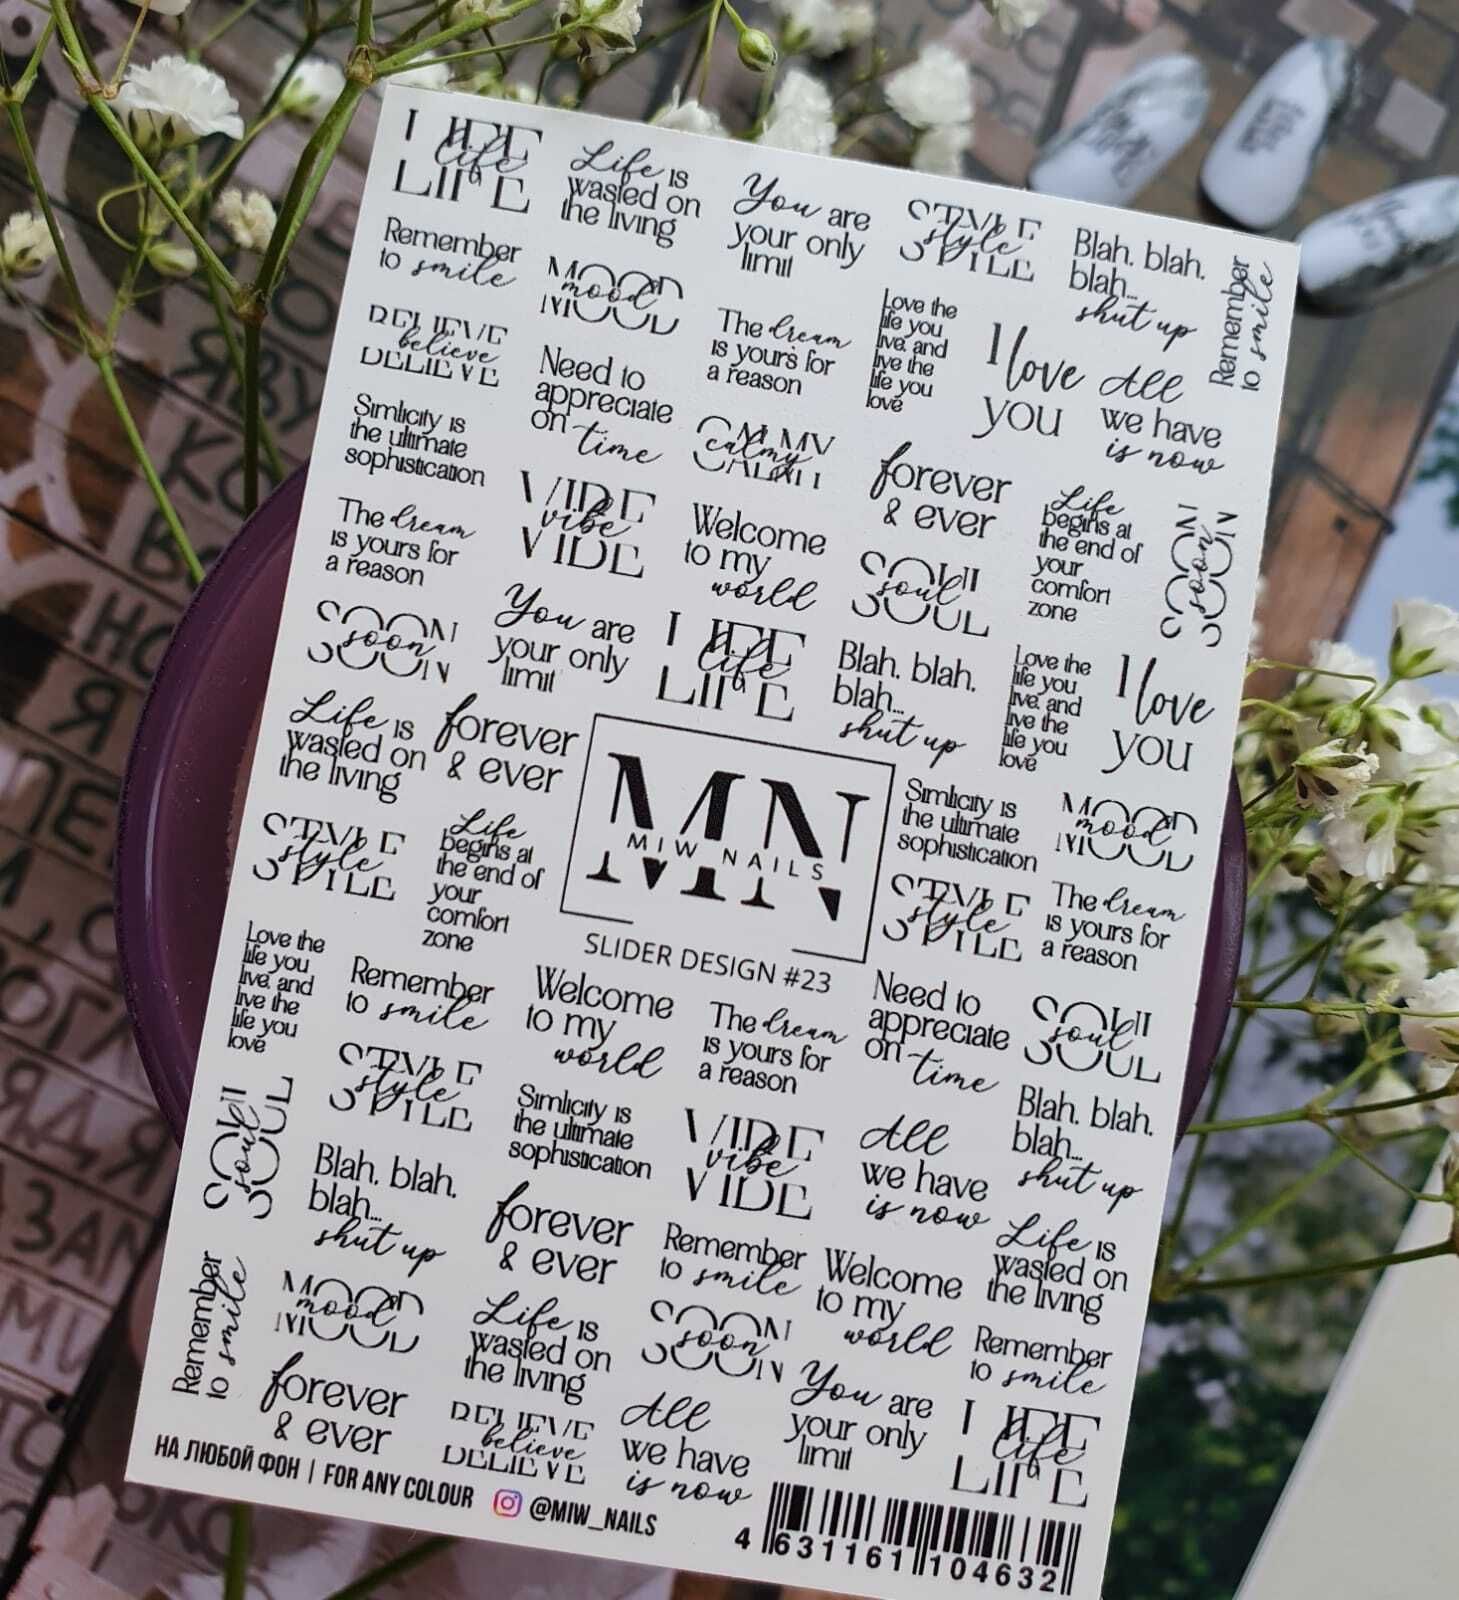 LIFE life LIFE
Life is
wasted on
the living
You are
your only
limit
STYLE style STYLE
Blah. blah.
blah...
shut up
Remember
to smile
Remember
to smile
MOOD mood MOOD
The dream
is yours for
a reason
Love the
life you
live. and
live the
life you
love
I love
you
All
we have
is now
BELIEVE believe BELIEVE
Need to
appreciate
on time
CALMY calmy CALMY
forever
& ever
Simlicity is
the ultimate
sophistication
VIBE vibe VIBE
Welcome
to my
world
SOUL soul SOUL
Life
begins at
the end of
your
comfort
zone
SOON soon SOON
The dream
is yours for
a reason
SOON soon SOON
You are
your only
limit
LIFE life LIFE
Blah. blah.
blah...
shut up
Love the
life you
live. and
live the
life you
love
I love
you
Life is
wasted on
the living
forever
& ever
MN
MIW NAILS
SLIDER DESIGN #23
Simlicity is
the ultimate
sophistication
MOOD mood MOOD
STYLE style STYLE
Life
begins at
the end of
your
comfort
zone
STYLE style STYLE
The dream
is yours for
a reason
Love the
life you
live. and
live the
life you
love
Remember
to smile
Welcome
to my
world
The dream
is yours for
a reason
Need to
appreciate
on time
SOUL soul SOUL
SOUL soul SOUL
STYLE style STYLE
Simlicity is
the ultimate
sophistication
VIBE vibe VIBE
All
we have
is now
Blah. blah.
blah...
shut up
Blah. blah.
blah...
shut up
forever
& ever
Remember
to smile
Welcome
to my
world
Life is
wasted on
the living
Remember
to smile
MOOD mood MOOD
Life is
wasted on
the living
SOON soon SOON
You are
your only
limit
Remember
to smile
forever
& ever
BELIEVE believe BELIEVE
All
we have
is now
LIFE life LIFE
НА ЛЮБОЙ ФОН | FOR ANY COLOUR @MIW_NAILS
4 631161 104632